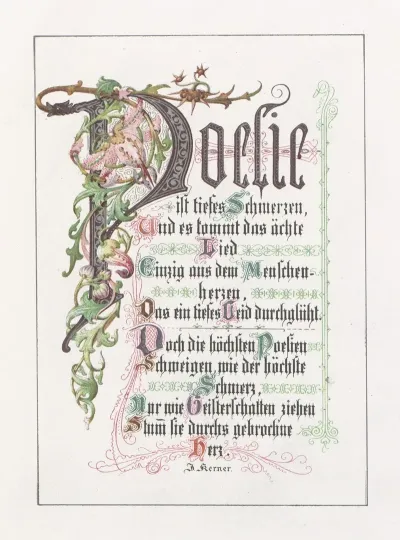 Poesie
ist tiefes Schmerzen,
Und es kommt das ächte
Lied
Einzig aus dem Menschen-
herzen,
Das ein tiefes Leid durchglüht.
Doch die höchsten Poesien
Schweigen wie der höchste
Schmerz,
Nur wie Geisterschatten ziehen
Stum̅ sie durchs gebrochne
Herz.
J. Kerner.